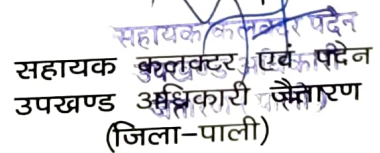 सहायक कलक्टर पदेन
सहायक कलक्टर एवं पदेन
उपखण्ड अधिकारी जैतारण
(जिला-पाली)